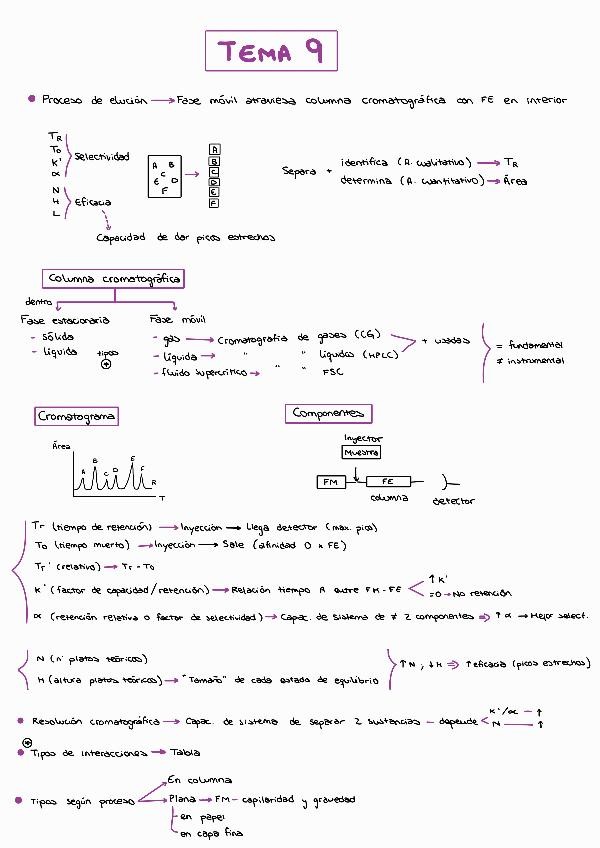 TEMA 9
• Proceso de elución → Fase móvil atraviesa columna cromatográfica con FE en interior
TR
To
K'
α
Selectividad
N
H
L
Eficacia
A B
C
E D
F
A
B
C
D
E
F
Separa +
identifica (A. cualitativo) → TR
determina (A. cuantitativo) → Área
Capacidad de dar picos estrechos
Columna cromatográfica
dentro
Fase estacionaria
- sólida
- líquida
tipos
Fase móvil
- gas → Cromatografía de gases (CG)
- líquida → " " líquidos (HPLC)
- fluido supercrítico → " " FSC
+ usadas
= fundamental
≠ instrumental
Cromatograma
Área
A B C D E F
R
T
Componentes
Inyector
Muestra
FM
FE
columna
detector
Tr (tiempo de retención) → Inyección → Llega detector (max. pico)
To (tiempo muerto) → Inyección → Sale (afinidad 0 x FE)
Tr' (relativo) → Tr - To
K' (factor de capacidad/retención) → Relación tiempo A entre FM - FE
↑ K'
=0 → No retención
α (retención relativa o factor de selectividad) → Capac. de sistema de ≠ 2 componentes ⇒ ↑ α → Mejor select.
N (nº platos teóricos)
H (altura platos teóricos) → "Tamaño" de cada estado de equilibrio
↑ N ; ↓ H ⇒ ↑ eficacia (picos estrechos)
• Resolución cromatográfica → Capac. de sistema de separar 2 sustancias - depende
K'/α - ↑
N — ↑
• Tipos de interacciones → Tabla
• Tipos según proceso
En columna
Plana → FM - capilaridad y gravedad
- en papel
- en capa fina